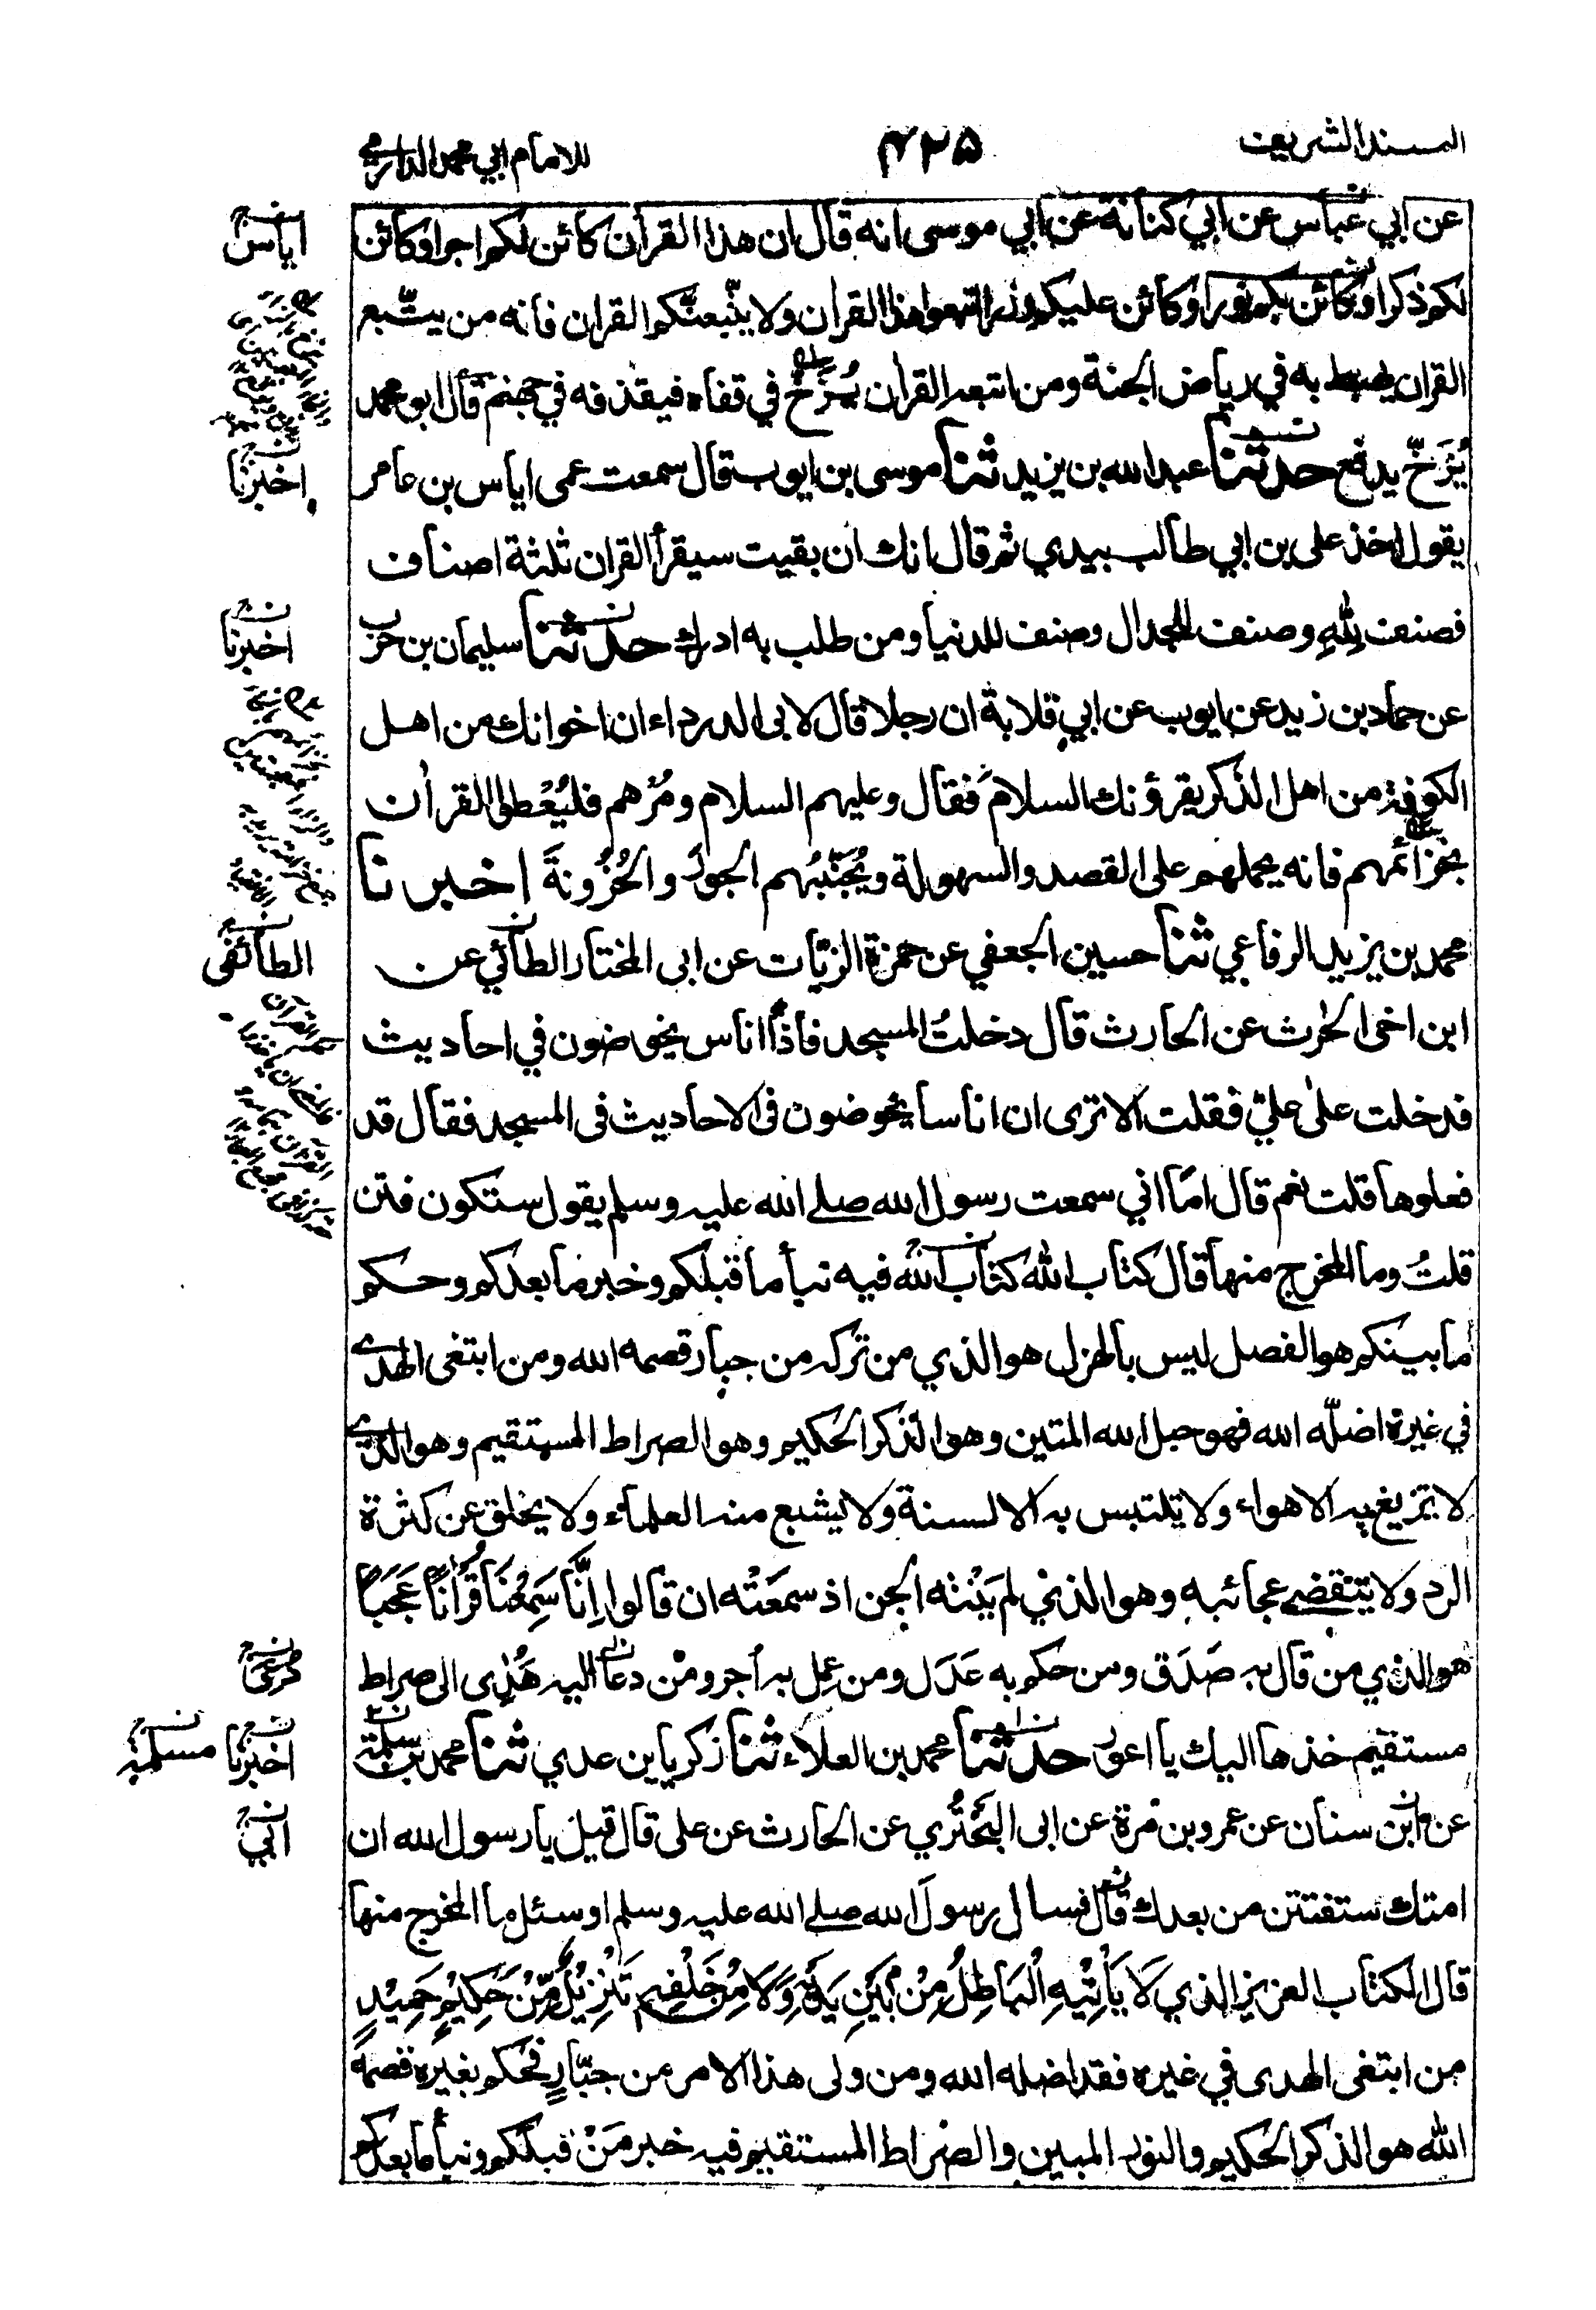 المسند الشريف
۴۲۵
للامام ابي محمد الدارمي
عن ابي عباس عن ابي كنانة عن ابي موسى انه قال ان هذا القرآن كائن لكم اجرا وكائن
لكم ذكرا وكائن بكم نورا وكائن عليكم وزرا اتبعوا هذا القرآن ولا يتّبعنّكم القران فانه من يتّبع
القران يهبط به في رياض الجنة ومن اتبعه القران يُزَخّ في قفاه فيقذفه في جهنم قال ابو محمد
يُزَخّ يدفع حدثنا عبد الله بن يزيد ثنا موسى بن ايوب قال سمعت عمى اياس بن عامر
يقول اخذ على بن ابي طالب بيدي ثم قال انك ان بقيت سيقرأ القران ثلثة اصناف
فصنف لِلّٰهِ وصنف للجدال وصنف للدنيا ومن طلب به ادرك حدثنا سليمان بن حرب
عن حماد بن زيد عن ايوب عن ابي قلابة ان رجلا قال لابى الدرداء ان اخوانك من اهل
الكوفة من اهل الذكر يقرؤنك السلام فقال وعليهم السلام ومُرْهم فليُعْطوا القرآن
بخزائمهم فانه يحملهم على القصد والسهولة ويُجَنّبُهم الجور والحُزُونةَ اخبرنا
محمد بن يزيد الرفاعي ثنا حسين الجعفي عن حمزة الزيّات عن ابى المختار الطائي عن
ابن اخى الحٰرث عن الحارث قال دخلتُ المسجد فاذا اناس يخوضون في احاديث
فدخلت علىٰ عليّ فقلت الا ترى ان اناسا يخوضون فى الاحاديث فى المسجد فقال قد
فعلوها قلت نعم قال اما اني سمعت رسول الله صلے الله عليه وسلم يقول ستكون فتن
قلتُ وما المخرج منها قال كتاب الله كتاب الله فيه نبأ ما قبلكم وخبر ما بعدكم وحكم
ما بينكم هو الفصل ليس بالهزل هو الذي من تركه من جبار قصمه الله ومن ابتغى الهدے
في غيرة اضلّه الله فهو حبل الله المتين وهو الذكر الحكيم وهو الصراط المستقيم وهو الذي
لا تزيغ به الاهواء ولا تلتبس به الالسنة ولا يشبع منه العلماء ولا يخلق عن كثرة
الرد ولا يتنقضے عجائبه وهو الذي لم يَنْتَه الجن اذ سمعَتْه ان قالوا اِنَّا سَمِعْنَا قُرْاٰنًا عَجَبًا
هو الذي من قال به صَدَق ومن حكم به عَدَل ومن عمِل به اُجر ومن دعا اليه هُدِى الى صراط
مستقيم خذها اليك يا اعور حدثنا محمد بن العلاء ثنا زكريا بن عدي ثنا محمد بن سلمة
عن ابن سنان عن عمرو بن مُرة عن ابى البَخْتُري عن الحارث عن على قال قيل يا رسول الله ان
امتك ستفتتن من بعدك قال فسال رسول الله صلے الله عليه وسلم او سئل ما المخرج منها
قال الكتاب العزيز الذي لَا يَأْتِيْهِ الْبَاطِلُ مِنْ بَيْنِ يَدَيْهِ وَلَا مِنْ خَلْفِهٖ تَنْزِيْلٌ مِّنْ حَكِيْمٍ حَمِيْدٍ
من ابتغى الهدى في غيره فقد اضله الله ومن ولى هذا الامر من جبّارٍ فحكم بغيره قصمه
الله هو الذكر الحكيم والنور المبين والصراط المستقيم فيه خبر مَنْ قبلكم ونبأ ما بعدكم
اياس
اخبرنا
اخبرنا
الطائفى
اخبرنا مسلمة
ابي